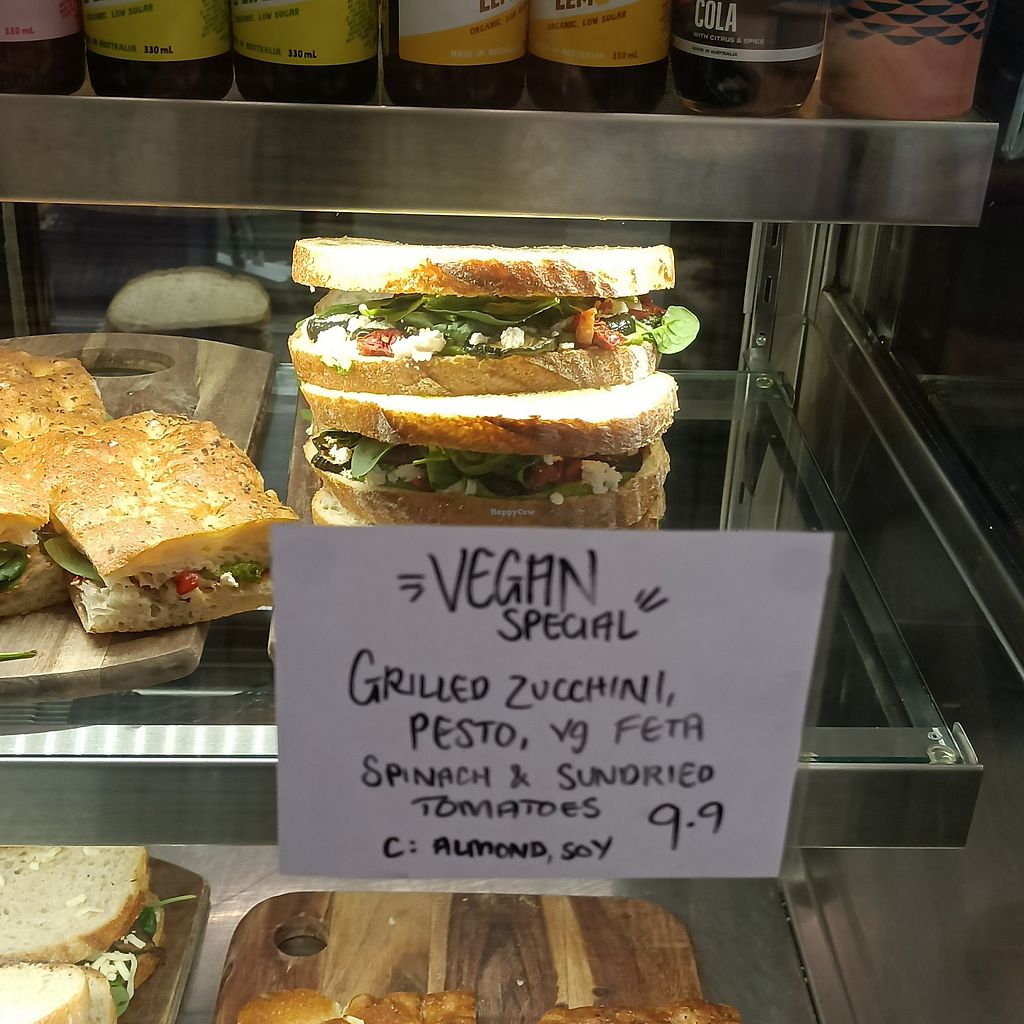 ORGANIC. LOW SUGAR
330 mL
ORGANIC. LOW SUGAR
MADE IN AUSTRALIA 330 mL
ORGANIC. LOW SUGAR
MADE IN AUSTRALIA
ORGANIC. LOW SUGAR
330 mL
COLA
WITH CITRUS & SPICE
MADE IN AUSTRALIA
HappyCow
VEGAN
SPECIAL
GRILLED ZUCCHINI,
PESTO, Vg FETA
SPINACH & SUNDRIED
TOMATOES 9.9
C: ALMOND, SOY